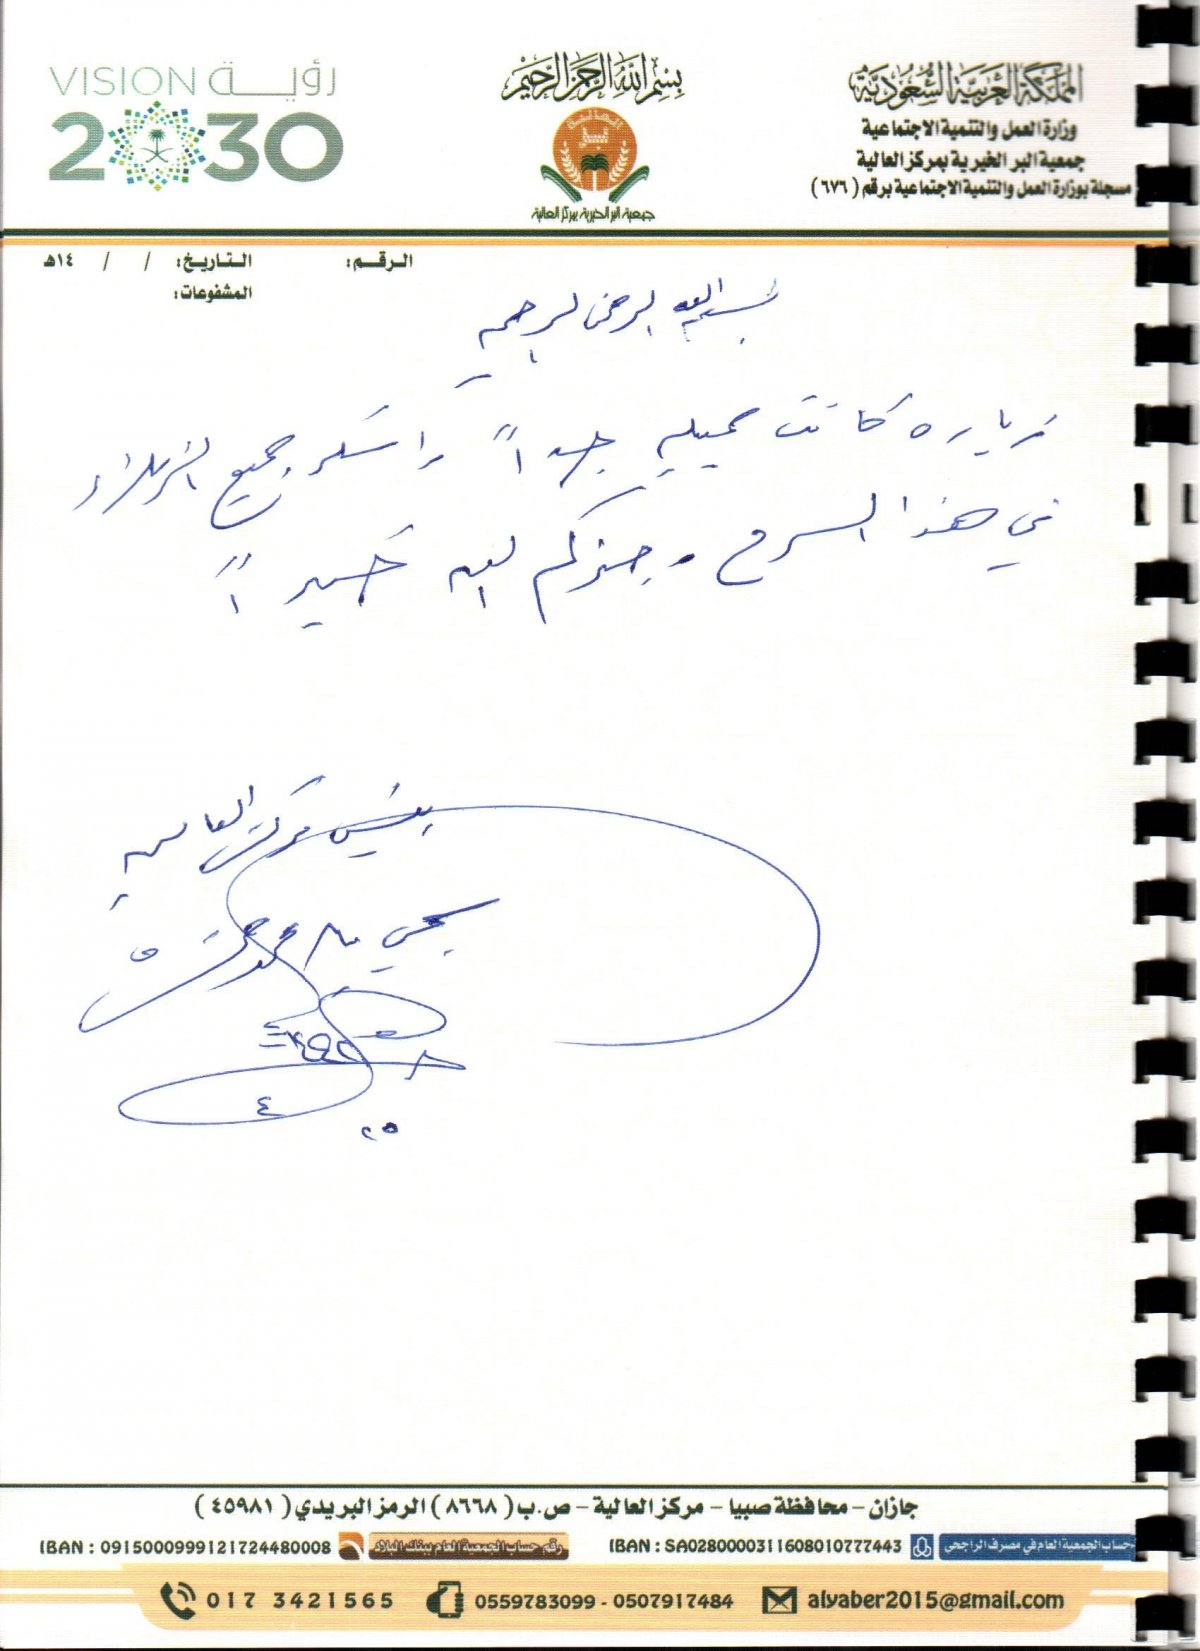 المملكة العربية السعودية
وزارة العمل والتنمية الاجتماعية
جمعية البر الخيرية بمركز العالية
مسجلة بوزارة العمل والتنمية الاجتماعية برقم ( ٦٧٦ )
بسم الله الرحمن الرحيم
العالية
جمعية البر الخيرية بمركز العالية
VISION رؤيـــة
2030
الرقـم: التـاريخ: / / ١٤هـ
المشفوعات:
بسم الله الرحمن الرحيم
زياره كانت جميله جداً واشكر جميع الزملاء
في هذا الصرح وجزاكم الله خيراً
رئيس مركز العالية
يحيى محمد
٤
٢٥
جازان – محافظة صبيا – مركز العالية – ص.ب ( ٨٦٦٨ ) الرمز البريدي ( ٤٥٩٨١ )
حساب الجمعية العام في مصرف الراجحي IBAN : SA0280000311608010777443
رقم حساب الجمعية العام ببنك البلاد IBAN : 0915000999121724480008
017 3421565 0559783099 - 0507917484 alyaber2015@gmail.com